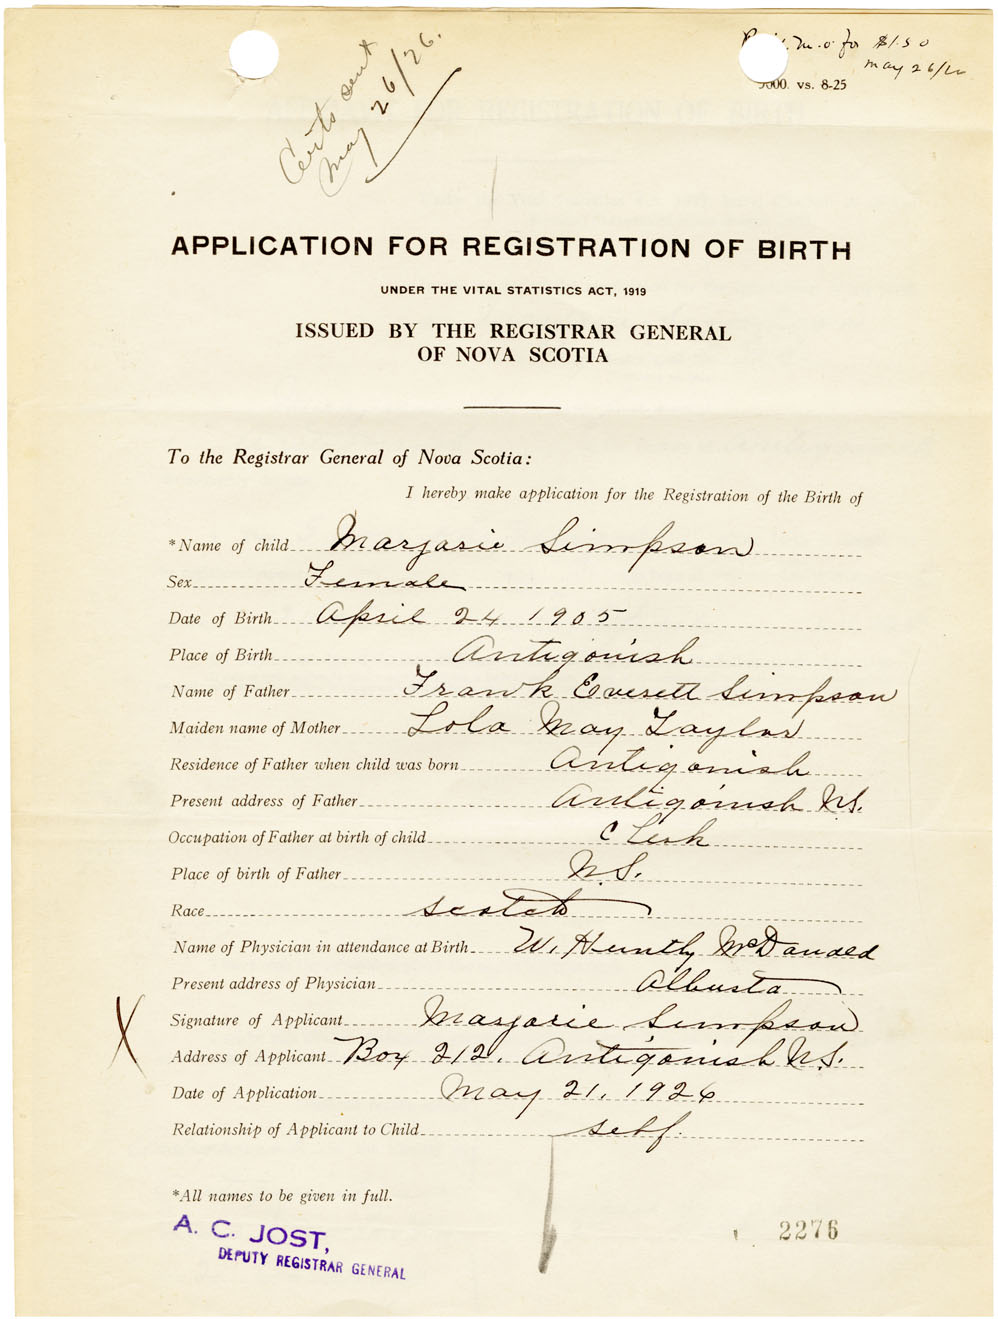 Certs sent
May 26/26.
M.O. for $1.50
May 26/26
5000. vs. 8-25
APPLICATION FOR REGISTRATION OF BIRTH
UNDER THE VITAL STATISTICS ACT, 1919
ISSUED BY THE REGISTRAR GENERAL
OF NOVA SCOTIA
To the Registrar General of Nova Scotia:
I hereby make application for the Registration of the Birth of
*Name of child Marjorie Simpson
Sex Female
Date of Birth April 24 1905
Place of Birth Antigonish
Name of Father Frank Everett Simpson
Maiden name of Mother Lola May Taylor
Residence of Father when child was born Antigonish
Present address of Father Antigonish N.S.
Occupation of Father at birth of child Clerk
Place of birth of Father N.S.
Race Scotch
Name of Physician in attendance at Birth W. Huntly McDonald
Present address of Physician Alberta
X
Signature of Applicant Marjorie Simpson
Address of Applicant Box 212, Antigonish N.S.
Date of Application May 21, 1926
Relationship of Applicant to Child self.
*All names to be given in full.
A. C. JOST,
DEPUTY REGISTRAR GENERAL
2276